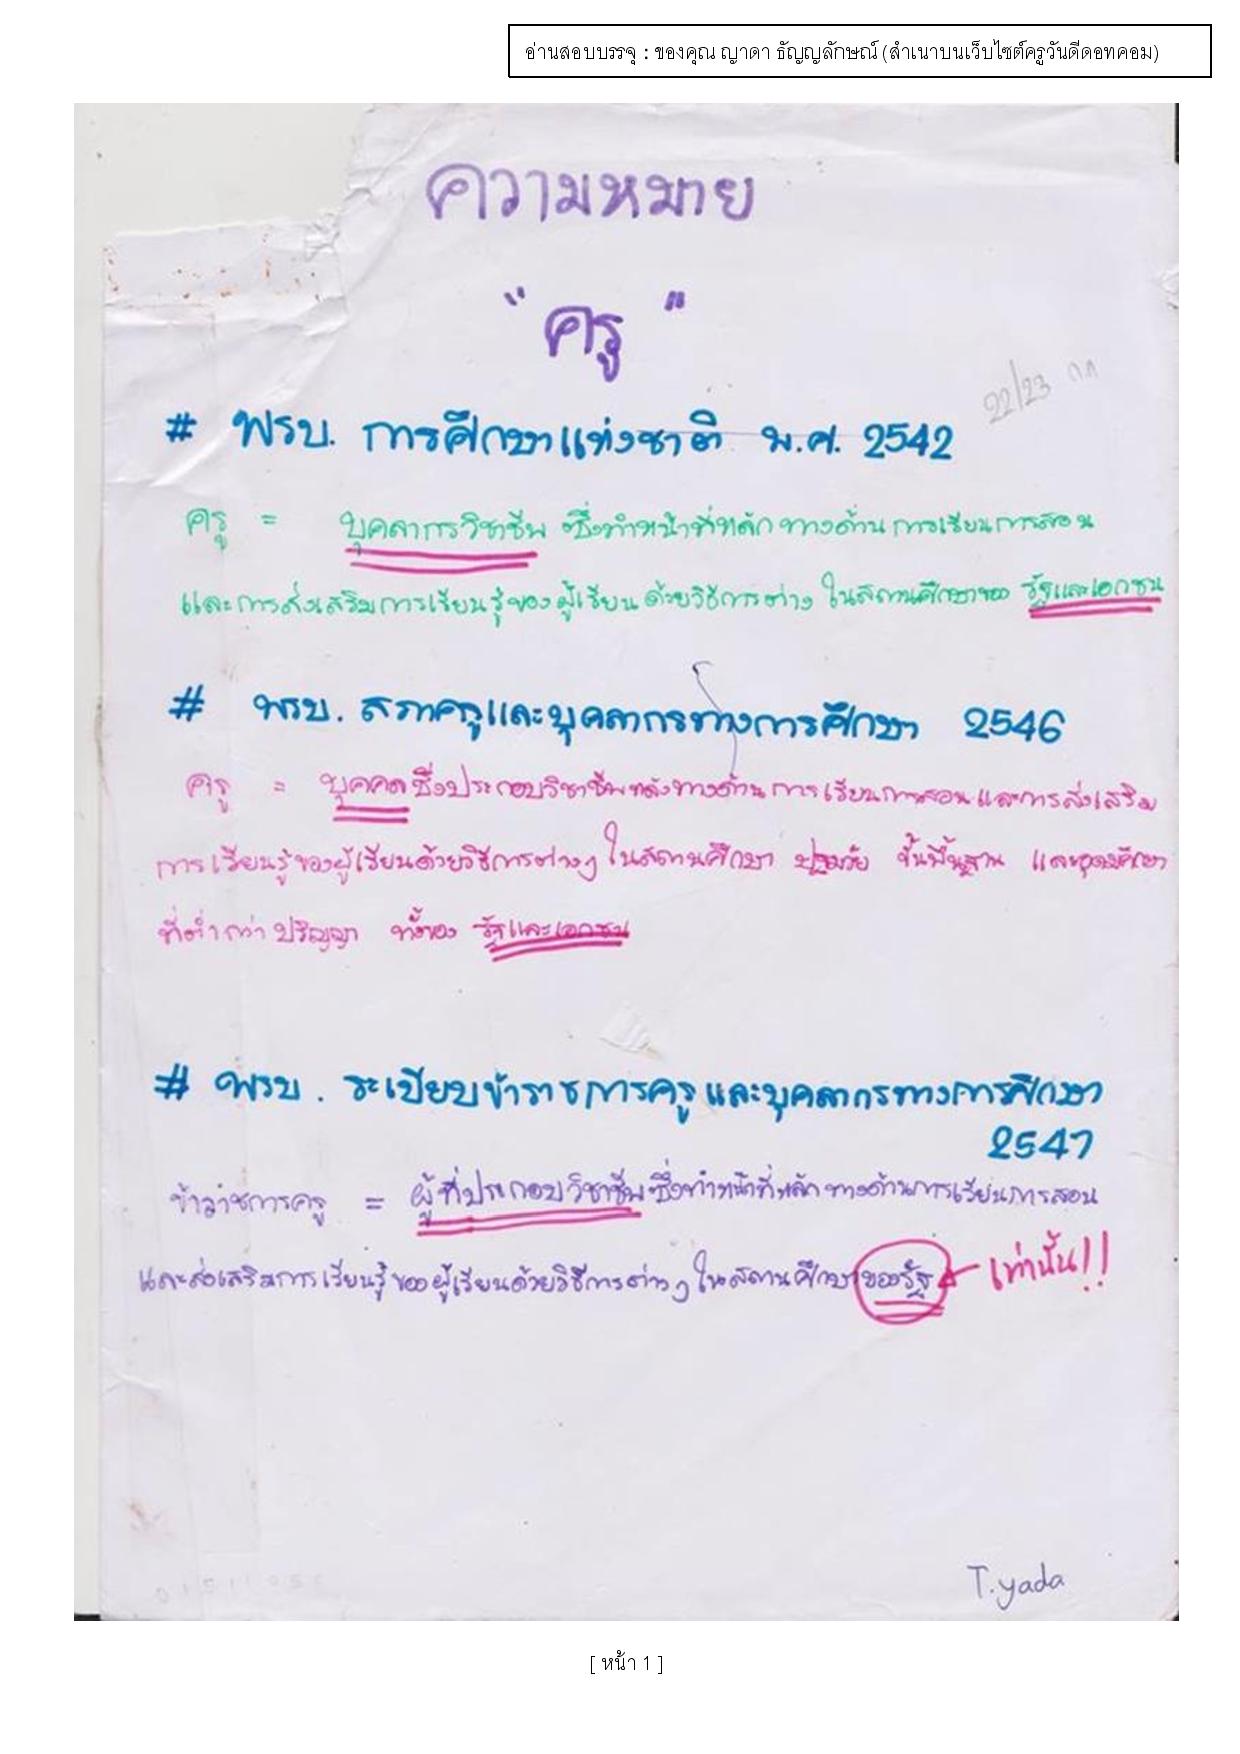 อ่านสอบบรรจุ : ของคุณ ญาดา ธัญญลักษณ์ (สำเนาบนเว็บไซต์ครูวันดีดอทคอม)
ความหมาย
"ครู"
22/23
# พรบ. การศึกษาแห่งชาติ พ.ศ. 2542
ครู = บุคลากรวิชาชีพ ซึ่งทำหน้าที่หลักทางด้านการเรียนการสอน
และการส่งเสริมการเรียนรู้ของผู้เรียนด้วยวิธีการต่าง ในสถานศึกษาของ รัฐและเอกชน
# พรบ. สภาครูและบุคลากรทางการศึกษา 2546
ครู = บุคคล ซึ่งประกอบวิชาชีพหลักทางด้านการเรียนการสอนและการส่งเสริม
การเรียนรู้ของผู้เรียนด้วยวิธีการต่างๆ ในสถานศึกษา ปฐมวัย ขั้นพื้นฐาน และอุดมศึกษา
ที่ต่ำกว่าปริญญา ทั้งของ รัฐและเอกชน
# พรบ. ระเบียบข้าราชการครูและบุคลากรทางการศึกษา
2547
ข้าราชการครู = ผู้ที่ประกอบวิชาชีพ ซึ่งทำหน้าที่หลักทางด้านการเรียนการสอน
และส่งเสริมการเรียนรู้ของผู้เรียนด้วยวิธีการต่างๆ ในสถานศึกษาของรัฐ เท่านั้น!!
T.yada
[ หน้า 1 ]